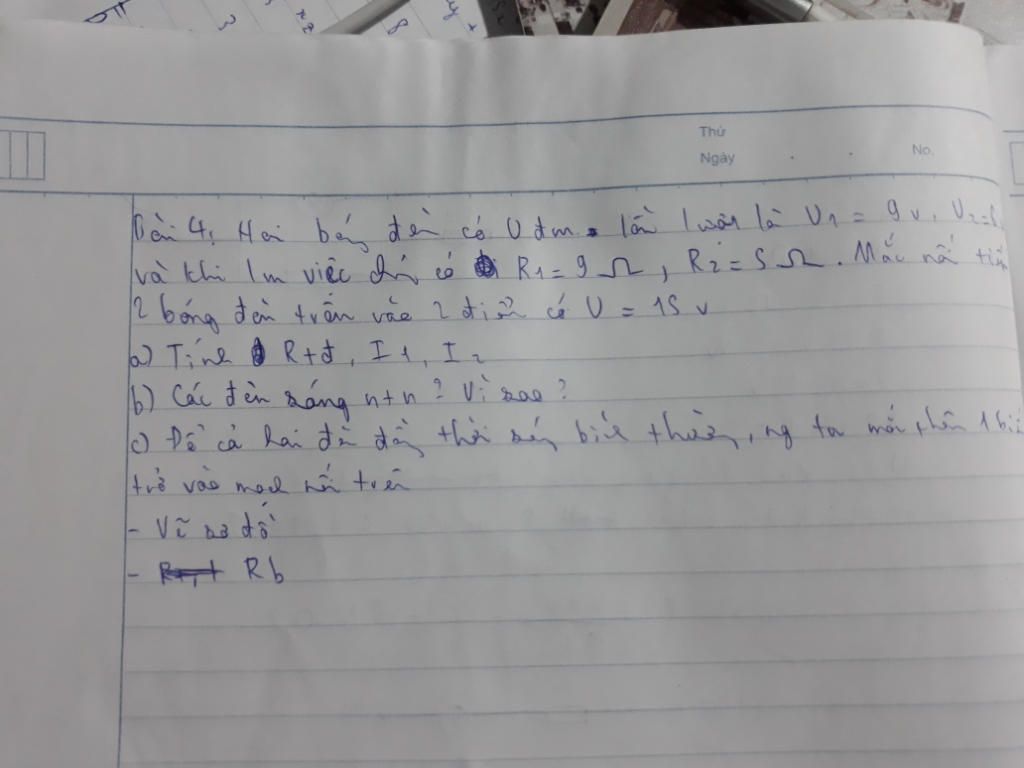 Thứ
Ngày . . No.
Bài 4: Hai bóng đèn có U đm lần lượt là U1 = 9 v, U2 =
và khi lm việc chú có R1 = 9 Ω, R2 = 5 Ω. Mắc nối tiế
2 bóng đèn trên vào 2 điể có U = 15 v
a) Tính R+đ, I1, I2
b) Các đèn sáng n+n? Vì sao?
c) Để cả hai đè đồng thời sáng bình thường, ng ta mắc thên 1 biế
trở vào mạch nối trên
- Vẽ sơ đồ
- Rb